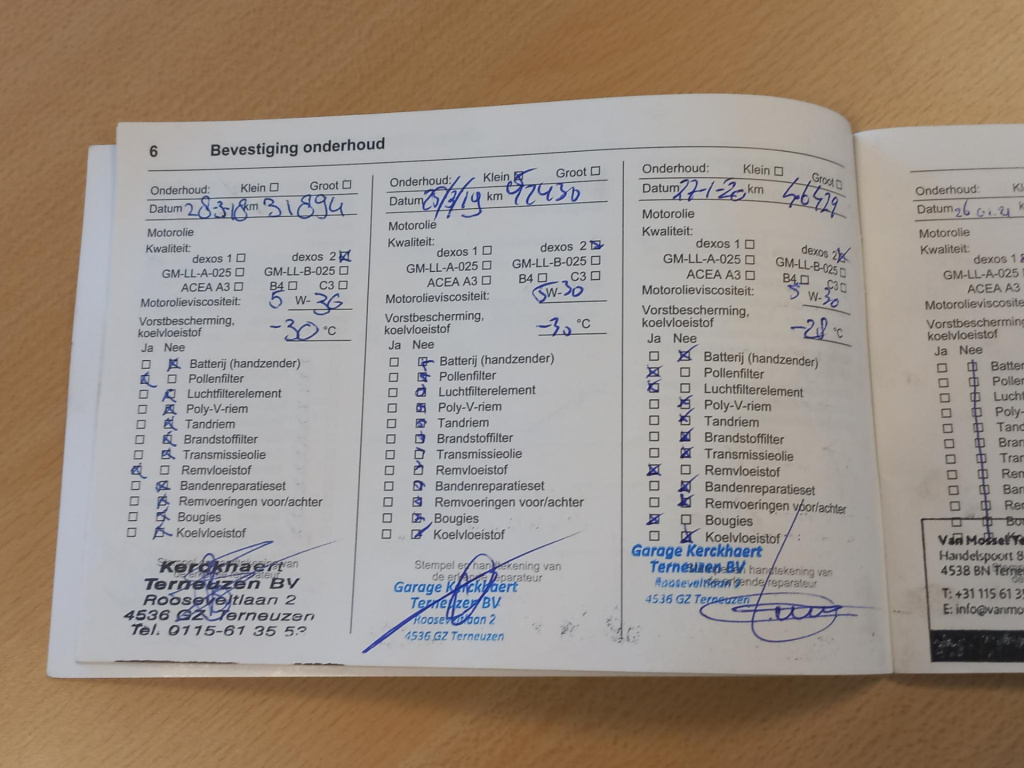 6 Bevestiging onderhoud
Onderhoud: Klein Groot
Datum 28-3-18 km 31894
Motorolie
Kwaliteit:
dexos 1 dexos 2
GM-LL-A-025 GM-LL-B-025
ACEA A3 B4 C3
Motorolieviscositeit: 5 W-30
Vorstbescherming,
koelvloeistof -30 °C
Ja Nee
Batterij (handzender)
Pollenfilter
Luchtfilterelement
Poly-V-riem
Tandriem
Brandstoffilter
Transmissieolie
Remvloeistof
Bandenreparatieset
Remvoeringen voor/achter
Bougies
Koelvloeistof
Stempel en handtekening van
de erkende reparateur
Kerckhaert
Terneuzen BV
Rooseveltlaan 2
4536 GZ Terneuzen
Tel. 0115-61 35 52
Onderhoud: Klein Groot
Datum 25/7/19 km 42430
Motorolie
Kwaliteit:
dexos 1 dexos 2
GM-LL-A-025 GM-LL-B-025
ACEA A3 B4 C3
Motorolieviscositeit: 5W-30
Vorstbescherming,
koelvloeistof -30 °C
Ja Nee
Batterij (handzender)
Pollenfilter
Luchtfilterelement
Poly-V-riem
Tandriem
Brandstoffilter
Transmissieolie
Remvloeistof
Bandenreparatieset
Remvoeringen voor/achter
Bougies
Koelvloeistof
Stempel en handtekening van
de erkende reparateur
Garage Kerckhaert
Terneuzen BV
Rooseveltlaan 2
4536 GZ Terneuzen
Onderhoud: Klein Groot
Datum 27-1-20 km 46429
Motorolie
Kwaliteit:
dexos 1 dexos 2
GM-LL-A-025 GM-LL-B-025
ACEA A3 B4 C3
Motorolieviscositeit: 5 W-30
Vorstbescherming,
koelvloeistof -28 °C
Ja Nee
Batterij (handzender)
Pollenfilter
Luchtfilterelement
Poly-V-riem
Tandriem
Brandstoffilter
Transmissieolie
Remvloeistof
Bandenreparatieset
Remvoeringen voor/achter
Bougies
Koelvloeistof
Stempel en handtekening van
de erkende reparateur
Garage Kerckhaert
Terneuzen BV
Rooseveltlaan 2
4536 GZ Terneuzen
Onderhoud: Kl
Datum 26 01 21 km
Motorolie
Kwaliteit:
dexos 1
GM-LL-A-025
ACEA A3
Motorolieviscositeit
Vorstbescherming,
koelvloeistof
Ja Nee
Batter
Pollen
Lucht
Poly-
Tand
Bran
Tran
Rem
Ban
Rem
Bou
Van Mossel Te
Handelspoort 8
4538 BN Terne
T: +31 115 61 35
E: info@vanmo